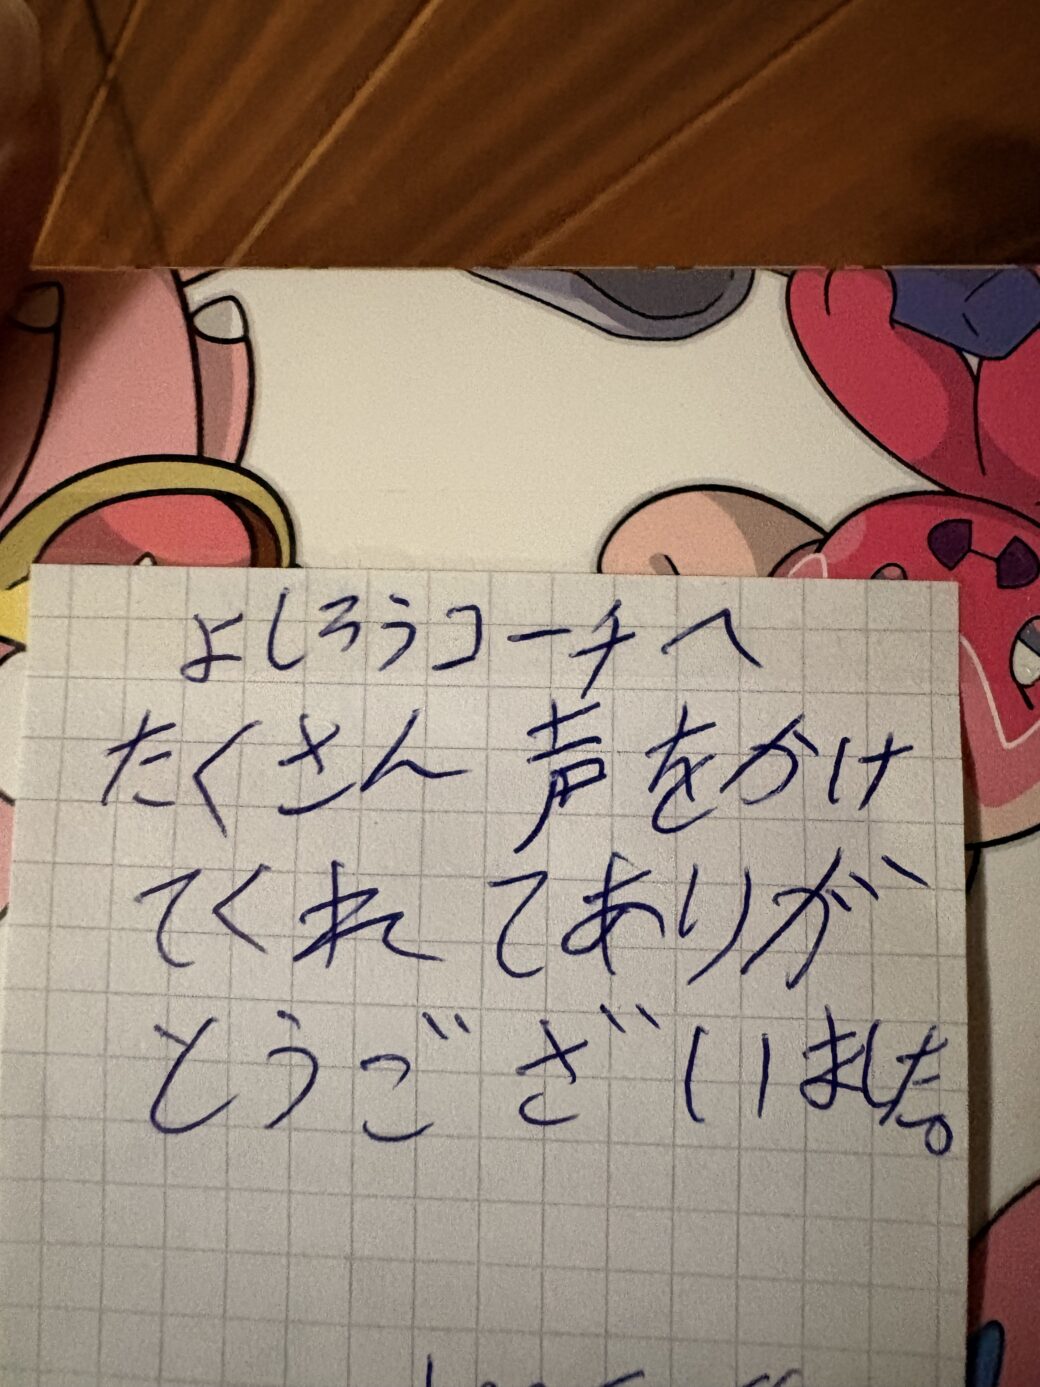 よしろうコーチへ
たくさん声をかけ
てくれてありが
とうございました。